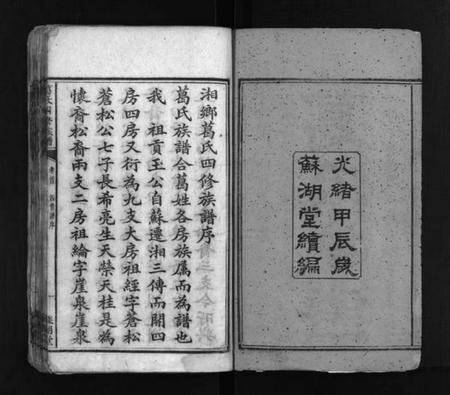 光緒甲辰歲
蘇湖堂續編
湘鄉葛氏四修族譜序
葛氏族譜合葛姓各房族属而為譜也
我　祖貢王公自蘇遷湘三傳而開四
房四房又衍為九支大房祖經字蒼松
蒼松公七子長希亮生天榮天桂是為
懷裔松裔兩支二房祖綸字崖泉崖泉